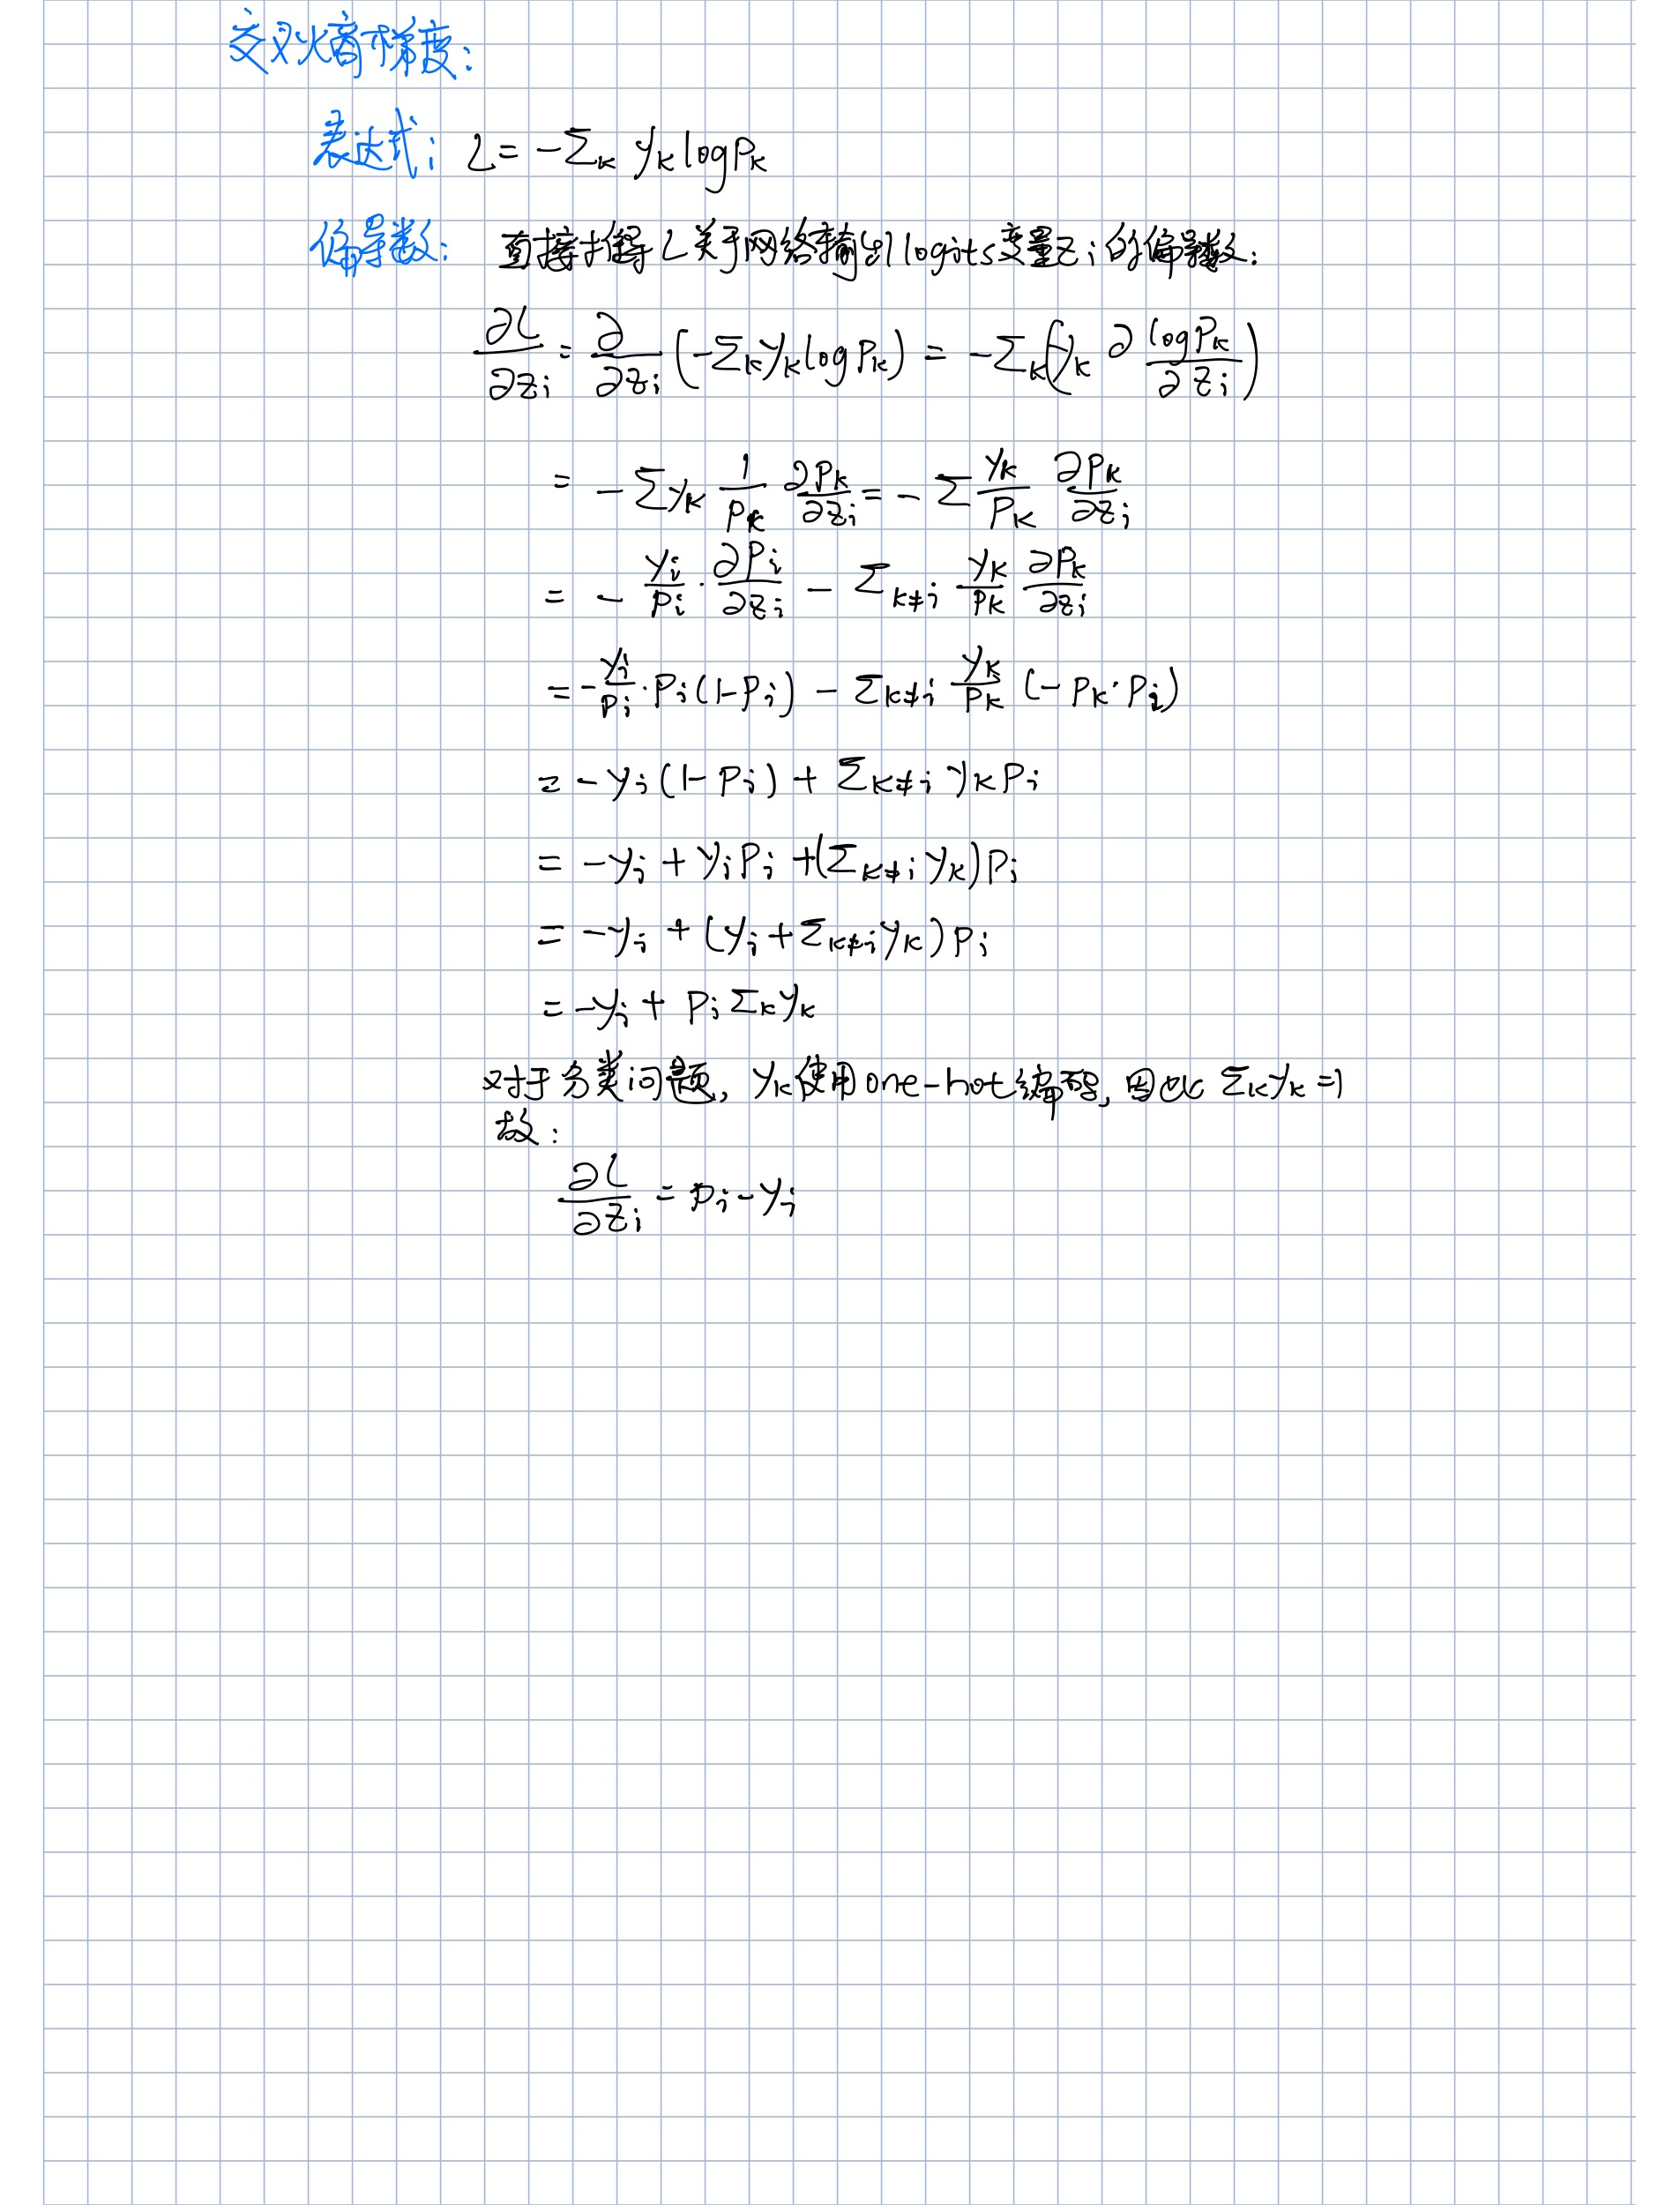 交叉火商梯度：
表达式： L = -Σₖ yₖ log pₖ
偏导数： 直接推导 L 关于网络输出 logits 变量 zᵢ 的偏导数：
∂L/∂zᵢ = ∂/∂zᵢ (-Σₖ yₖ log pₖ) = -Σₖ (yₖ ∂ log pₖ/∂zᵢ)
= -Σ yₖ 1/pₖ ∂pₖ/∂zᵢ = -Σ yₖ/pₖ ∂pₖ/∂zᵢ
= - yᵢ/pᵢ · ∂pᵢ/∂zᵢ - Σₖ≠ᵢ yₖ/pₖ ∂pₖ/∂zᵢ
= - yᵢ/pᵢ · pᵢ(1-pᵢ) - Σₖ≠ᵢ yₖ/pₖ (-pₖ·pᵢ)
= -yᵢ(1-pᵢ) + Σₖ≠ᵢ yₖpᵢ
= -yᵢ + yᵢpᵢ + (Σₖ≠ᵢ yₖ)pᵢ
= -yᵢ + (yᵢ + Σₖ≠ᵢ yₖ)pᵢ
= -yᵢ + pᵢ Σₖ yₖ
对于分类问题, yₖ使用one-hot编码, 因此 Σₖ yₖ = 1
故：
∂L/∂zᵢ = pᵢ - yᵢ